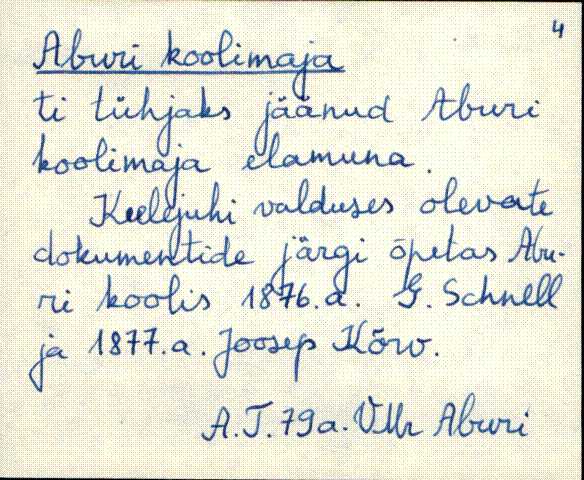 4
Aburi koolimaja
ti tühjaks jäänud Aburi
koolimaja elamuna.
Keelejuhi valduses olevate
dokumentide järgi õpetas Abu-
ri koolis 1876.a. G. Schnell
ja 1877.a. Joosep Kõrv.
A.T. 79a. VMr Aburi